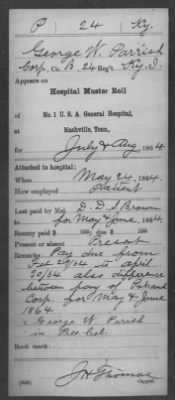 P 24 Ky.
George W. Parrish
Corp., Co. B, 24 Reg't Ky. I.
Appears on
Hospital Muster Roll
of
No. 1 U. S. A. General Hospital,
Nashville, Tenn.,
for July & Aug, 1864.
Attached to hospital:
When May 24, 1864.
How employed Patient
Last paid by Maj. D. D. S. Brown
to for May & June, 1864.
Bounty paid $ 100; due $ 100
Present or absent Present
Remarks: Pay due from
Feb 29/64 to April
20/64 also difference
between pay of Pvt and
Corp. for May & June
1864
George W. Parish
in Pres. Col.
Book mark:
J H Thomas
Copyist.